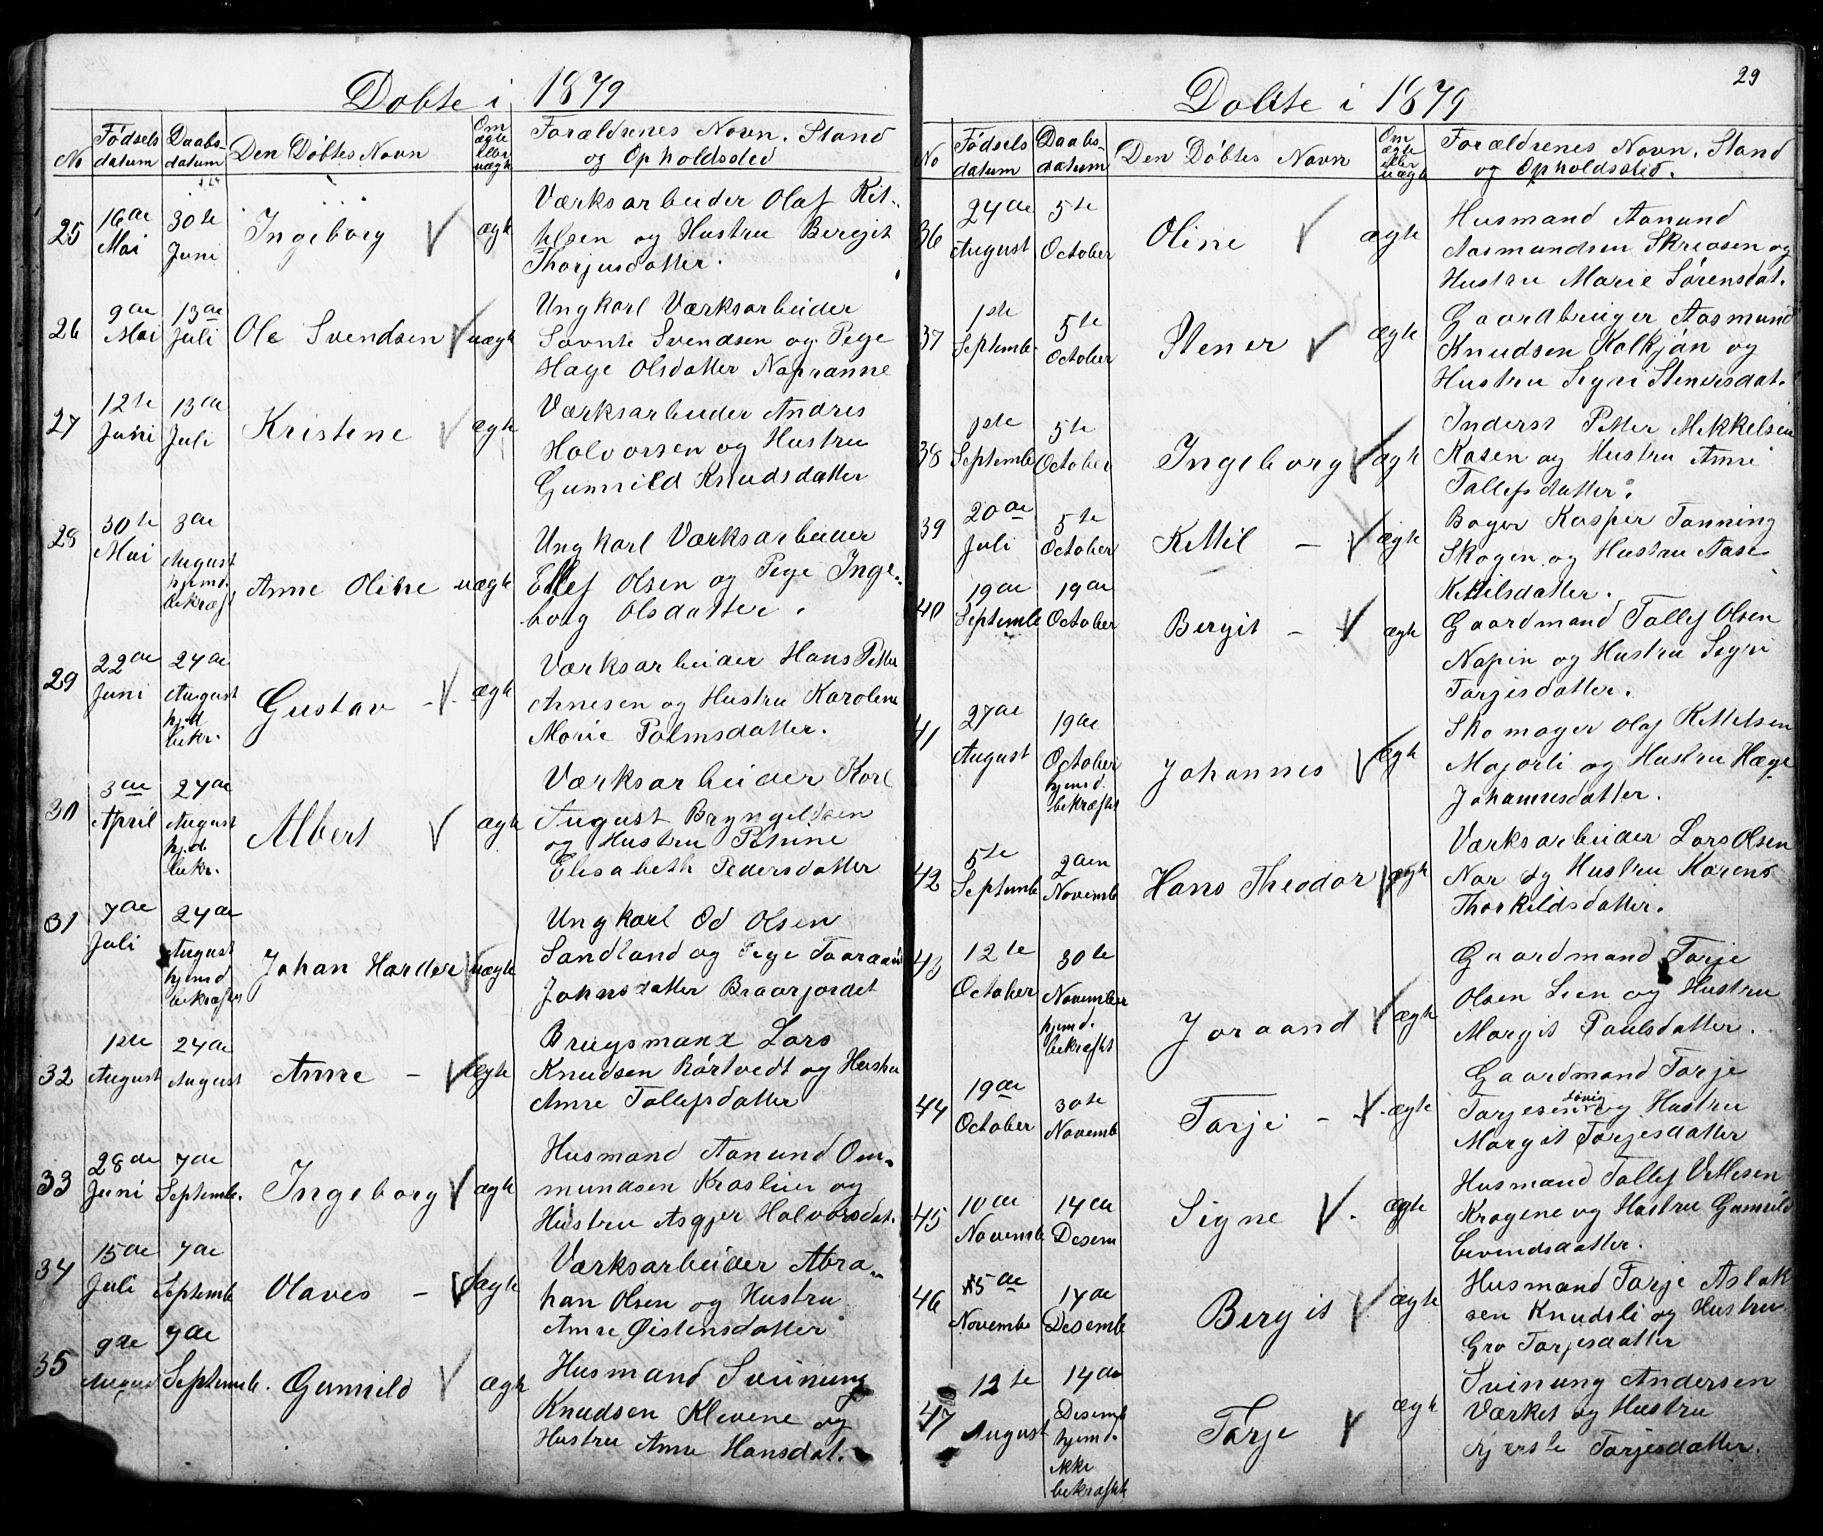 Døbte i 1879
No
Fødsels datum
Daabs- datum
Den Døbtes Navn
Om ægte eller uægte
Forældrenes Navn. Stand og Opholdssted
25 16de Mai 30te Juni Ingeborg ægte Værksarbeider Olaf Kit-
telsen og Hustru Bergit
Thorjusdatter.
26 9de Mai 13de Juli Ole Svendsen uægte Ungkarl Værksarbeider
Savnte Svendsen og Pige
Hage Olsdatter Napranne
27 12te Juni 13de Juli Kristene ægte Værksarbeider Andres
Halvorsen og Hustru
Gunnild Knudsdatter
28 30te Mai 3de August hjemd. bekræft Anne Oline uægte Ungkarl Værksarbeider
Ellef Olsen og Pige Inge-
borg Olsdatter.
29 22de Juni 24de August hj.d bekr. Gustav - ægte Værksarbeider Hans Petter
Arnesen og Hustru Karoline
Marie Palmsdatter.
30 3de April 24de August hj.d. bekr. Albert ægte Værksarbeider Karl
August Bryngelsen
og Hustru Petrine
Elisabeth Pedersdatter
31 7de Juli 24de August hjemd bekræftet Johan Harder uægte Ungkarl Od Olsen
Sandland og Pige Taaraand
Johnsdatter Braarjordet
32 1ste August 24de August Anne - ægte Brugsmand Lars
Knudsen Børtvedt og Hustru
Anne Tollefsdatter
33 28de Juni 7de Septemb. Ingeborg ægte Husmand Aanund Om-
mundsen Kraslien og
Hustru Asgjer Halvorsdat.
34 15de Juli 7de Septemb Olaves - ægte Værksarbeider Abra-
han Olsen og Hustru
Anne Øistensdatter
35 9de August 7de Septemb. Gunnild ægte Husmand Sveinung
Knudsen Klevene og
Hustru Anne Hansdat.
29
Døbte i 1879
No
Fødsels datum
Daabs- datum
Den Døbtes Navn
Om ægte eller uægte
Forældrenes Navn. Stand og Opholdssted.
36 24de August 5te October Oline ægte Husmand Aanund
Aasmundsen Skreosen og
Hustru Marie Sørensdat.
37 1ste Septemb. 5te October Stener ægte Gaardbruger Aasmund
Knudsen Kalkjøn og
Hustru Sigri Stenersdat.
38 1ste Septemb 5te October Ingeborg ægte Inderst Petter Mikkelsen
Kasen og Hustru Anne
Tollefsdatter.
39 20de Juli 5te October Kettil - ægte Bager Kasper Tanning
Skogen og Hustru Aase
Kittilsdatter.
40 19de Septemb 19de October Bergit - ægte Gaardmand Tallef Olsen
Napin og Hustru Sigri
Tarjesdatter.
41 27de August 19de October hjemd. bekræftet Johannes ægte Skomager Olaf Kittelsen
Majorli og Hustru Hæge
Johannesdatter.
42 5te Septemb 2den Novemb Hans Theodor ægte Værksarbeider Lars Olsen
Nar og Hustru Karens
Thorkildsdatter.
43 12te October 30te November hjemd. bekræftet Joraand ægte Gaardmand Tarje
Olsen Lien og Hustru
Margit Paulsdatter.
44 19de October 30te Novemb Tarje - ægte Gaardmand Tarje
Tarjesen Løvig og Hustru
Margit Tarjesdatter
45 10de Novemb 14de Desem Signe ægte Husmand Tallef Vetlesen
Kragene og Hustru Gunnild
Eevendsdatter.
46 15de Novemb 14de Desemb Bergit ægte Husmand Tarje Aslak
sen Knudsli og Hustru
Gro Tarjesdatter
47 12te August 14de Desemb hjemd. ikke bekræftet Tarje ægte Sveinung Andersen
Værket og Hustru
Kjersti Tarjesdatter.